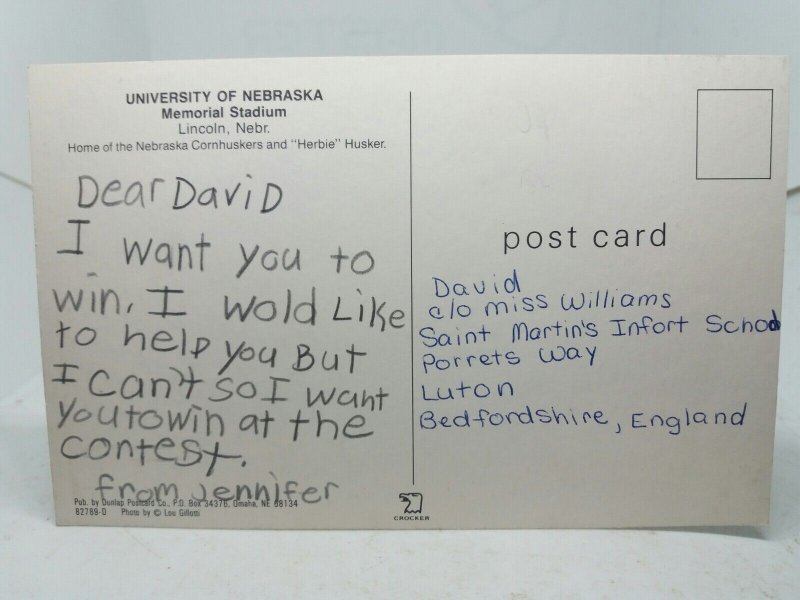 UNIVERSITY OF NEBRASKA
Memorial Stadium
Lincoln, Nebr.
Home of the Nebraska Cornhuskers and "Herbie" Husker.
Dear David
I want you to
win, I wold Like
to help you But
I can't so I want
you to win at the
contest.
from Jennifer
Pub. by Dunlap Postcard Co., P.O. Box 34376, Omaha, NE 68134
82789-D Photo by © Lou Gillotti
CROCKER
post card
David
c/o miss Williams
Saint Martin's Infort School
Porrets Way
Luton
Bedfordshire, England